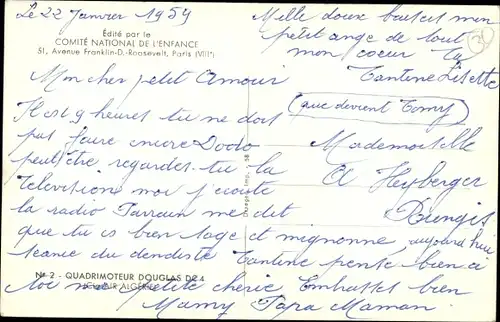 Le 22 Janvier 1959
Édité par le
COMITÉ NATIONAL DE L'ENFANCE
51, Avenue Franklin-D.-Roosevelt, Paris (VIIIe)
Mon cher petit Amour
Il est 9 heures tu ne dois
pas faire encore Dodo
peut être regardes tu la
Télévisione moi j'écoute
la radio Parrain me dit
que tu es bien sage et mignonne, aujourd'hui
séance du dendiste Tantine pense bien a
toi me petite cherie Embrasses bien
Mamy Papa Maman
Nº 2 - QUADRIMOTEUR DOUGLAS DC 4
Mille doux baisers mon
petit ange de tout
mon coeur ta
Tantine Lisette
que devient Tomy
Mademoiselle
A Heyberger
Rungis
Imp. 58